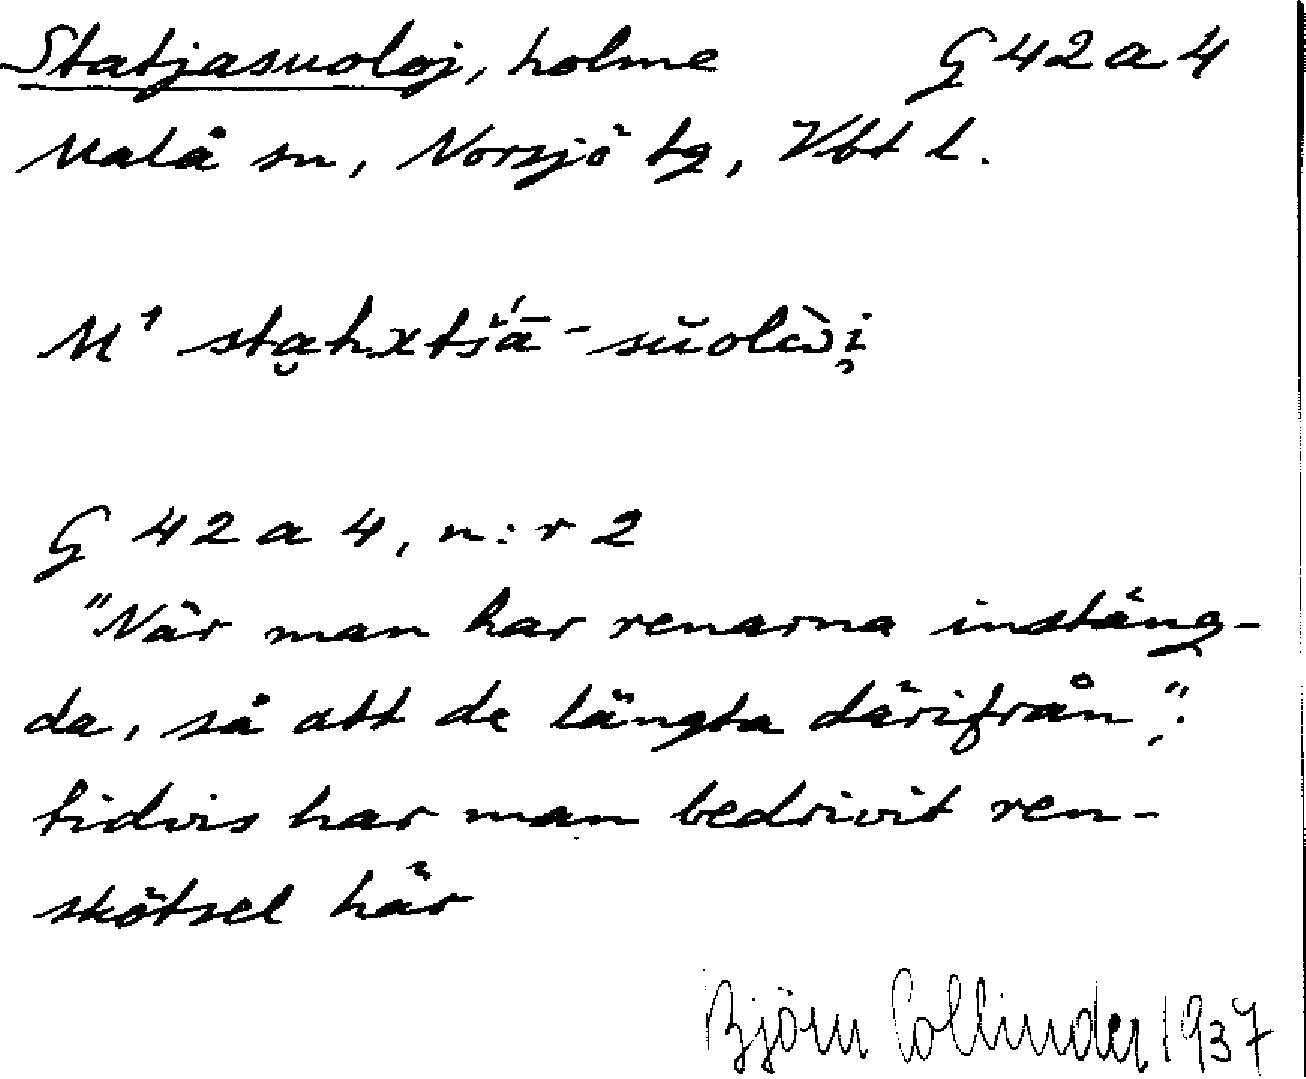 Statjasuoloj, holme G 42 a 4
Malå sn, Norsjö tg, Vbt l.
M¹ sta̮hxtš́ā-sŭolὼi̥
G 42 a 4, n:r 2
"När man har renarna instäng-
da, så att de längta därifrån";
tidvis har man bedrivit ren-
skötsel här
Björn Collinder 1937